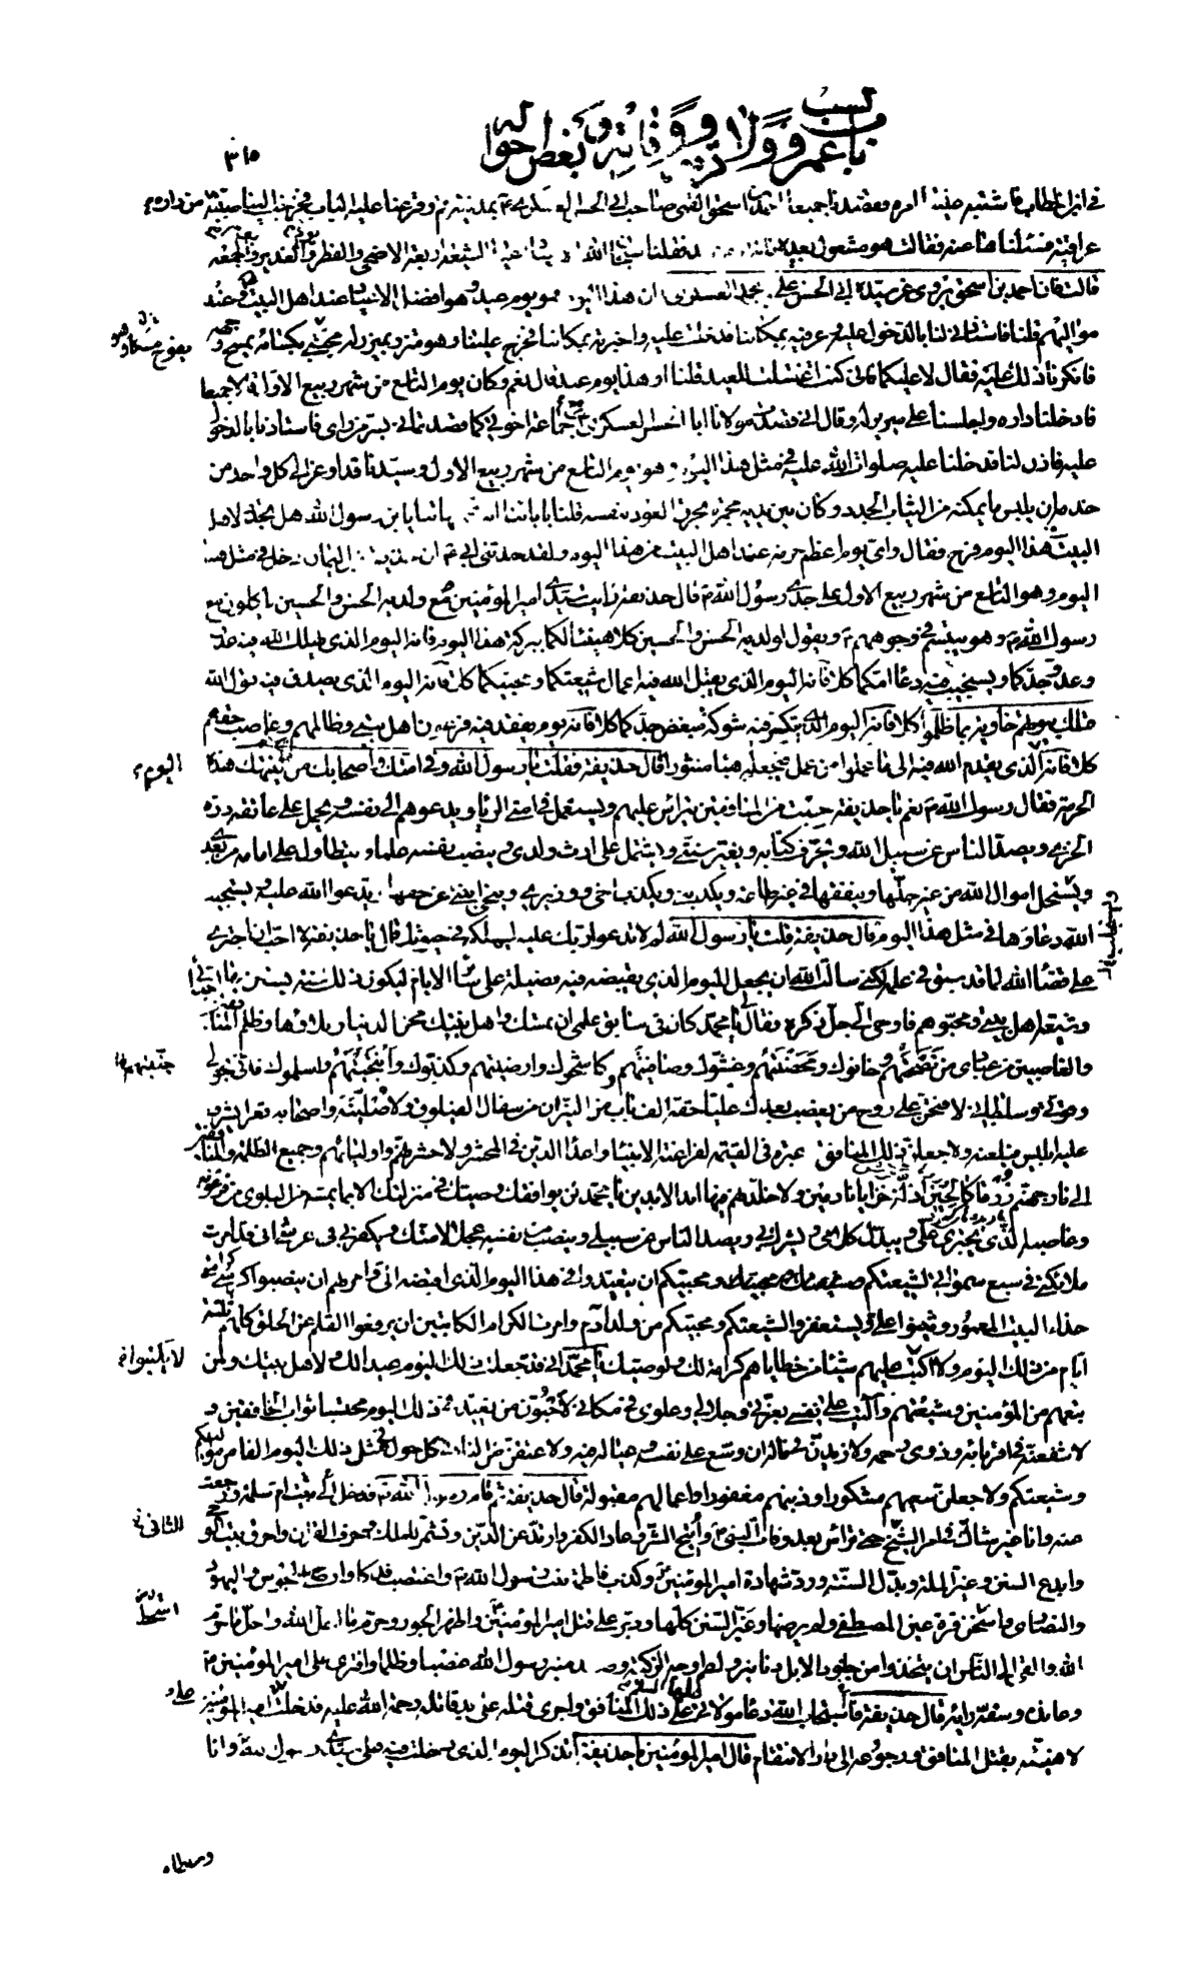 باب نسب عمر وولادته ووفاته وبعض أحواله
٣١٥
في ابن الخطاب فاشتبه علينا امره فقصدنا جميعا احمد بن اسحق القمي صاحب ابي الحسن العسكري ع بمدينة قم وقرعنا عليه الباب فخرجت الينا صبية من داره
عراقية فسئلناها عنه فقالت هو مشغول بعيده فانه يوم عيد فقلنا سبحان الله الاعياد عند الشيعة اربعة الاضحى والفطر ويوم الغدير ويوم الجمعة
قالت فان احمد بن اسحق يروي عن سيده ابي الحسن علي بن محمد العسكري ان هذا اليوم هو يوم عيد وهو افضل الاعياد عند اهل البيت وعند
مواليهم قلنا فاستاذني لنا بالدخول عليه وعرفيه بمكاننا فدخلت عليه واخبرته بمكاننا فخرج علينا وهو متزر بميزر له محتبي بكسائه يمسح وجهه
فانكرنا ذلك عليه فقال لا عليكما فاني كنت اغتسلت للعيد قلنا او هذا يوم عيد قال نعم وكان يوم التاسع من شهر ربيع الاول قالا جميعا
فادخلنا داره واجلسنا على سرير له وقال اني قصدت مولانا ابا الحسن العسكري مع جماعة اخوتي كما قصدتماني بسر من راى فاستاذنا بالدخول
عليه فاذن لنا فدخلنا عليه صلوات الله عليه في مثل هذا اليوم وهو يوم التاسع من شهر ربيع الاول وسيدنا قد اوعز الى كل واحد من
خدمه ان يلبس ما يمكنه من الثياب الجدد وكان بين يديه مجمرة يحرق العود بنفسه قلنا بابائنا انت وامهاتنا يا بن رسول الله هل يجدد لاهل
البيت هذا اليوم فرح فقال واي يوم اعظم حرمة عند اهل البيت من هذا اليوم ولقد حدثني ابي ع ان حذيفة بن اليمان دخل في مثل هذا
اليوم وهو التاسع من شهر ربيع الاول على جدي رسول الله ص قال حذيفة رايت سيدي امير المؤمنين مع ولديه الحسن والحسين ياكلون مع
رسول الله ص وهو يتبسم في وجوههم ويقول لولديه الحسن والحسين كلا هنيئا لكما ببركة هذا اليوم فانه اليوم الذي يهلك الله فيه عدوه
وعدو جدكما ويستجيب فيه دعاء امكما كلا فانه اليوم الذي يقبل الله فيه اعمال شيعتكما ومحبيكما كلا فانه اليوم الذي يصدق فيه قول الله
فتلك بيوتهم خاوية بما ظلموا كلا فانه اليوم الذي يتكسر فيه شوكة مبغض جدكما كلا فانه يوم يفقد فيه فرعون اهل بيتي وظالمهم وغاصب حقهم
كلا فانه الذي يقدم الله فيه الى ما عملوا من عمل فيجعله هباء منثورا قال حذيفة فقلت يا رسول الله وفي امتك واصحابك من ينتهك هذه
الحرمة فقال رسول الله ص نعم يا حذيفة جبت من المنافقين يتراس عليهم ويستعمل في امتي الريا ويدعوهم الى نفسه ويحمل على عاتقه درة
الخزي ويصد الناس عن سبيل الله ويحرف كتابه ويغير سنتي ويشتمل على ارث ولدي وينصب نفسه علما ويتطاول على امامه من بعدي
ويستحل اموال الله من غير حلها وينفقها في غير طاعته ويكذبني ويكذب اخي ووزيري وينحي ابنتي عن حقها يدعوا الله عليه ويستجيب
الله دعاءها في مثل هذا اليوم قال حذيفة قلت يا رسول الله لم لا تدعو ربك عليه ليهلكه في حيوتك قال يا حذيفة لا احب ان اجترئ
على قضاء الله لما قد سبق في علمه لكني سالت الله ان يجعل اليوم الذي يقبضه فيه فضيلة على سائر الايام ليكون ذلك سنة يستن بها احبائي
وشيعة اهل بيتي ومحبوهم فاوحى الي جل ذكره فقال لي يا محمد كان في سابق علمي ان تمسك واهل بيتك محن الدنيا وبلاؤها وظلم المنافقين
والغاصبين من عبادي من نصحتهم وخانوك ومحضتهم وغشوك وصافيتهم وكاشحوك وارضيتهم وكذبوك وانجيتهم واسلموك فاني بحولي
وقوتي وسلطاني لافتحن على روح من يغصب بعدك عليا حقه الف باب من النيران من سفال الفيلوق ولاصلينه واصحابه قعرا يشرف
عليه ابليس فيلعنه ولاجعلن ذلك المنافق عبرة في القيمة لفراعنة الانبياء واعداء الدين في المحشر ولاحشرنهم واولياءهم وجميع الظلمة والمنافقين
الى نار جهنم زرقا كالحين اذلة خزايا نادمين ولاخلدنهم فيها ابد الابدين يا محمد لن يوافقك وصيك في منزلتك الا بما يمسه من البلوى من فرعونه
وغاصبه الذي يجتري علي ويبدل كلامي ويشرك بي ويصد الناس عن سبيلي وينصب نفسه عجلا لامتك ويكفر بي في عرشي اني قد امرت
ملائكتي في سبع سمواتي لشيعتكم ومحبيكم ان يتعيدوا في هذا اليوم الذي اقبضه الي وامرتهم ان ينصبوا كرسي كرامتي
حذاء البيت المعمور ويثنوا علي ويستغفروا لشيعتكم ومحبيكم من ولد ادم وامرت الكرام الكاتبين ان يرفعوا القلم عن الخلق كلهم ثلثة
ايام من ذلك اليوم ولا اكتب عليهم شيئا من خطاياهم كرامة لك ولوصيك يا محمد اني قد جعلت ذلك اليوم عيدا لك ولاهل بيتك ولمن
تبعهم من المؤمنين وشيعتهم واليت على نفسي بعزتي وجلالي وعلوي في مكاني لاحبون من يعيد في ذلك اليوم محتسبا ثواب الخافقين و
لاشفعنه في اقربائه وذوي رحمه ولازيدن في ماله ان وسع على نفسه وعياله فيه ولاعتقن من النار في كل حول في مثل ذلك اليوم الفا من مواليكم
وشيعتكم ولاجعلن سعيهم مشكورا وذنبهم مغفورا واعمالهم مقبولة قال حذيفة ثم قام رسول الله ص فدخل الى بيت ام سلمة ورجعت
عنه وانا غير شاك في امر الشيخ حتى تراس بعد وفاة النبي ص واتيح الشر وعاد الكفر وارتد عن الدين وتشمر للملك وحرف القران واحرق بيت الوحي
وابدع السنن وغير الملة وبدل السنة ورد شهادة امير المؤمنين ع وكذب فاطمة بنت رسول الله ص واغتصب فدكا وارضى المجوس واليهود
والنصارى واسخن قرة عين المصطفى ولم يرضها وغير السنن كلها ودبر على قتل امير المؤمنين ع واظهر الجور وحرم ما احل الله واحل ما حرم
الله والقى الى الناس ان يتخذوا من جلود الابل دنانير ولطم وجه الزكية وصعد منبر رسول الله غصبا وظلما وافترى على امير المؤمنين ع
وعانده وسفه رايه قال حذيفة فاستجاب الله دعاء مولاتي على ذلك المنافق واجرى قتله على يد قاتله رحمة الله عليه فدخلت على امير المؤمنين
لاهنيه بقتل المنافق ورجوعه الى دار الانتقام قال امير المؤمنين يا حذيفة اتذكر اليوم الذي دخلت فيه على سيدي رسول الله وانا
وسبطاه